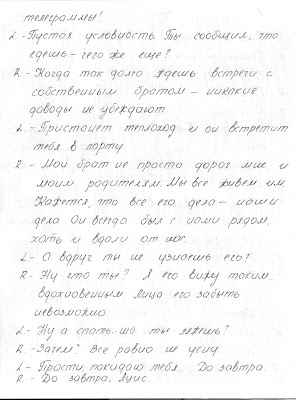 телеграммы!
L.- Пустая условность. Ты сообщил, что
едешь - чего же еще?
R.- Когда так долго ждешь встречи с
собственным братом - никакие
доводы не убеждают.
L.- Пристанет теплоход и он встретит
тебя в порту.
R.- Мой брат не просто дорог мне и
моим родителям. Мы все живем им.
Кажется, что все его дела - наши
дела. Он всегда был с нами рядом,
хоть и вдали от нас.
L.- А вдруг ты не узнаешь его?
R.- Ну что ты? Я его вижу таким
вдохновенным. Лица его забыть
невозможно.
L.- Ну а спать-то ты ляжешь?
R.- Зачем? Все равно не усну.
L.- Прости, покидаю тебя. До завтра.
R.- До завтра, Луис.